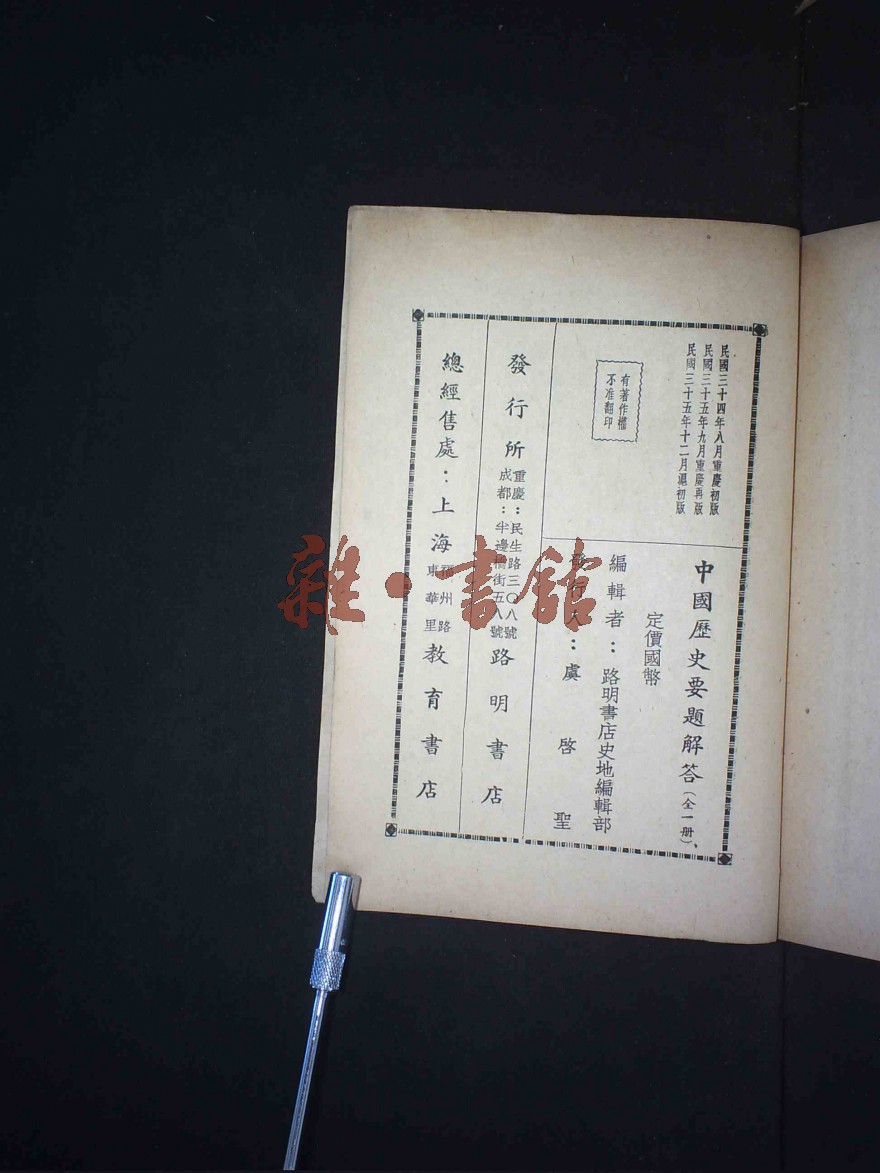 民國三十四年八月重慶初版
民國三十五年九月重慶再版
民國三十五年十二月滬初版
有著作權
不准翻印
中國歷史要題解答（全一册）、
定價國幣
編輯者：路明書店史地編輯部
發行人：虞啓聖
發行所
重慶：民生路三〇八號
成都：半邊橋街五八號
路明書店
總經售處：上海
福州路
東華里
教育書店
雜·書館